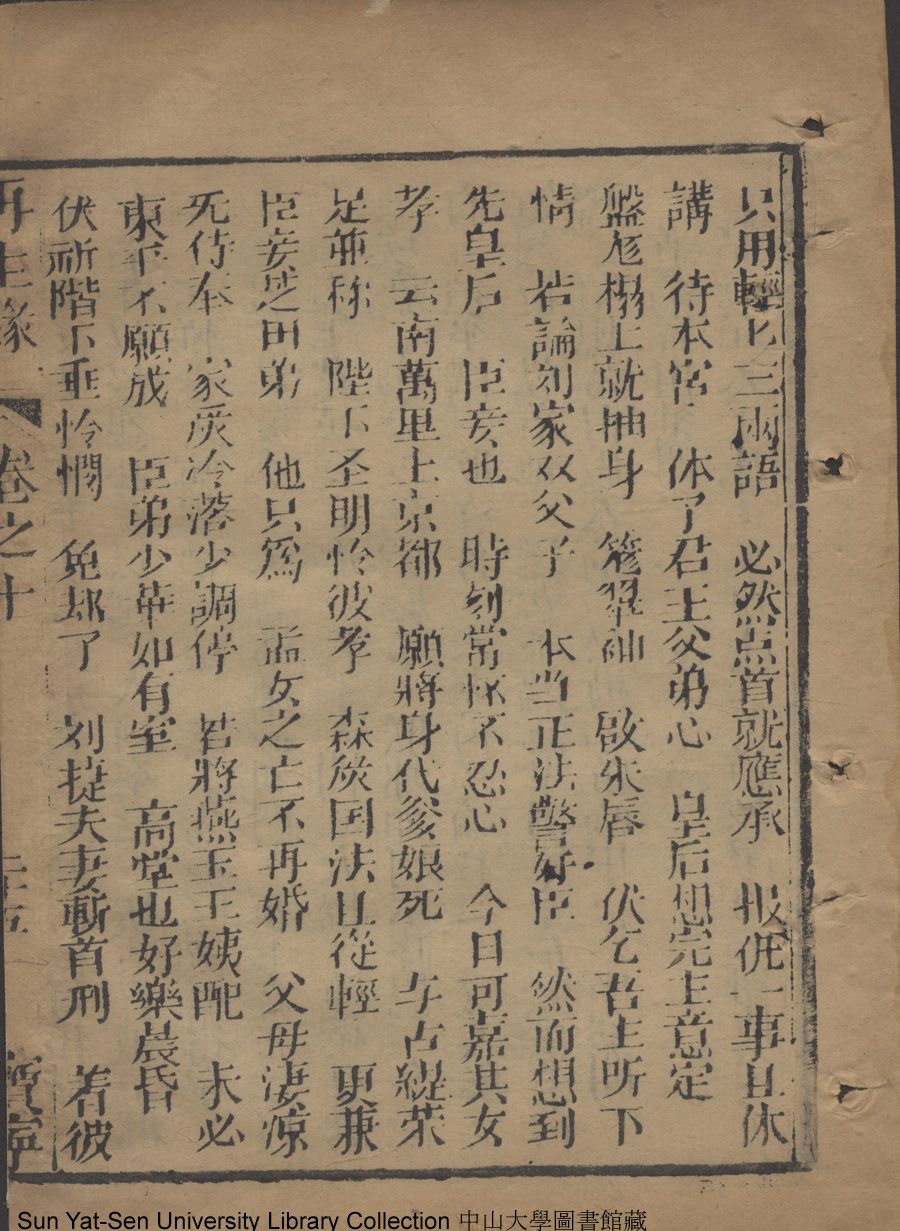 只用輕匕三兩語　必然点首就應承　报仇一事且休
講　待本宮　体了君王父弟心　皇后想完主意定
盤龙榻上就抽身　籠翠袖　啟朱唇　伏乞君主听下
情　若論刘家双父子　本当正法警奸臣　然而想到
先皇后　臣妾也　時刻常怀不忍心　今日可嘉其女
孝　云南萬里上京都　願將身代爹娘死　与古緹荣
足並称　陛下圣明怜彼孝　森厳国法且從輕　更兼
臣妾芝田弟　他只為　孟女之亡不再婚　父母淒凉
无侍奉　家庭冷落少調停　若將燕玉王姨配　未必
東平不願成　臣弟少華如有室　高堂也好樂晨昏
伏祈階下垂怜憫　免却了　刘捷夫妻斬首刑　着彼
再生緣　卷之十　寶寧
Sun Yat-Sen University Library Collection 中山大學圖書館藏